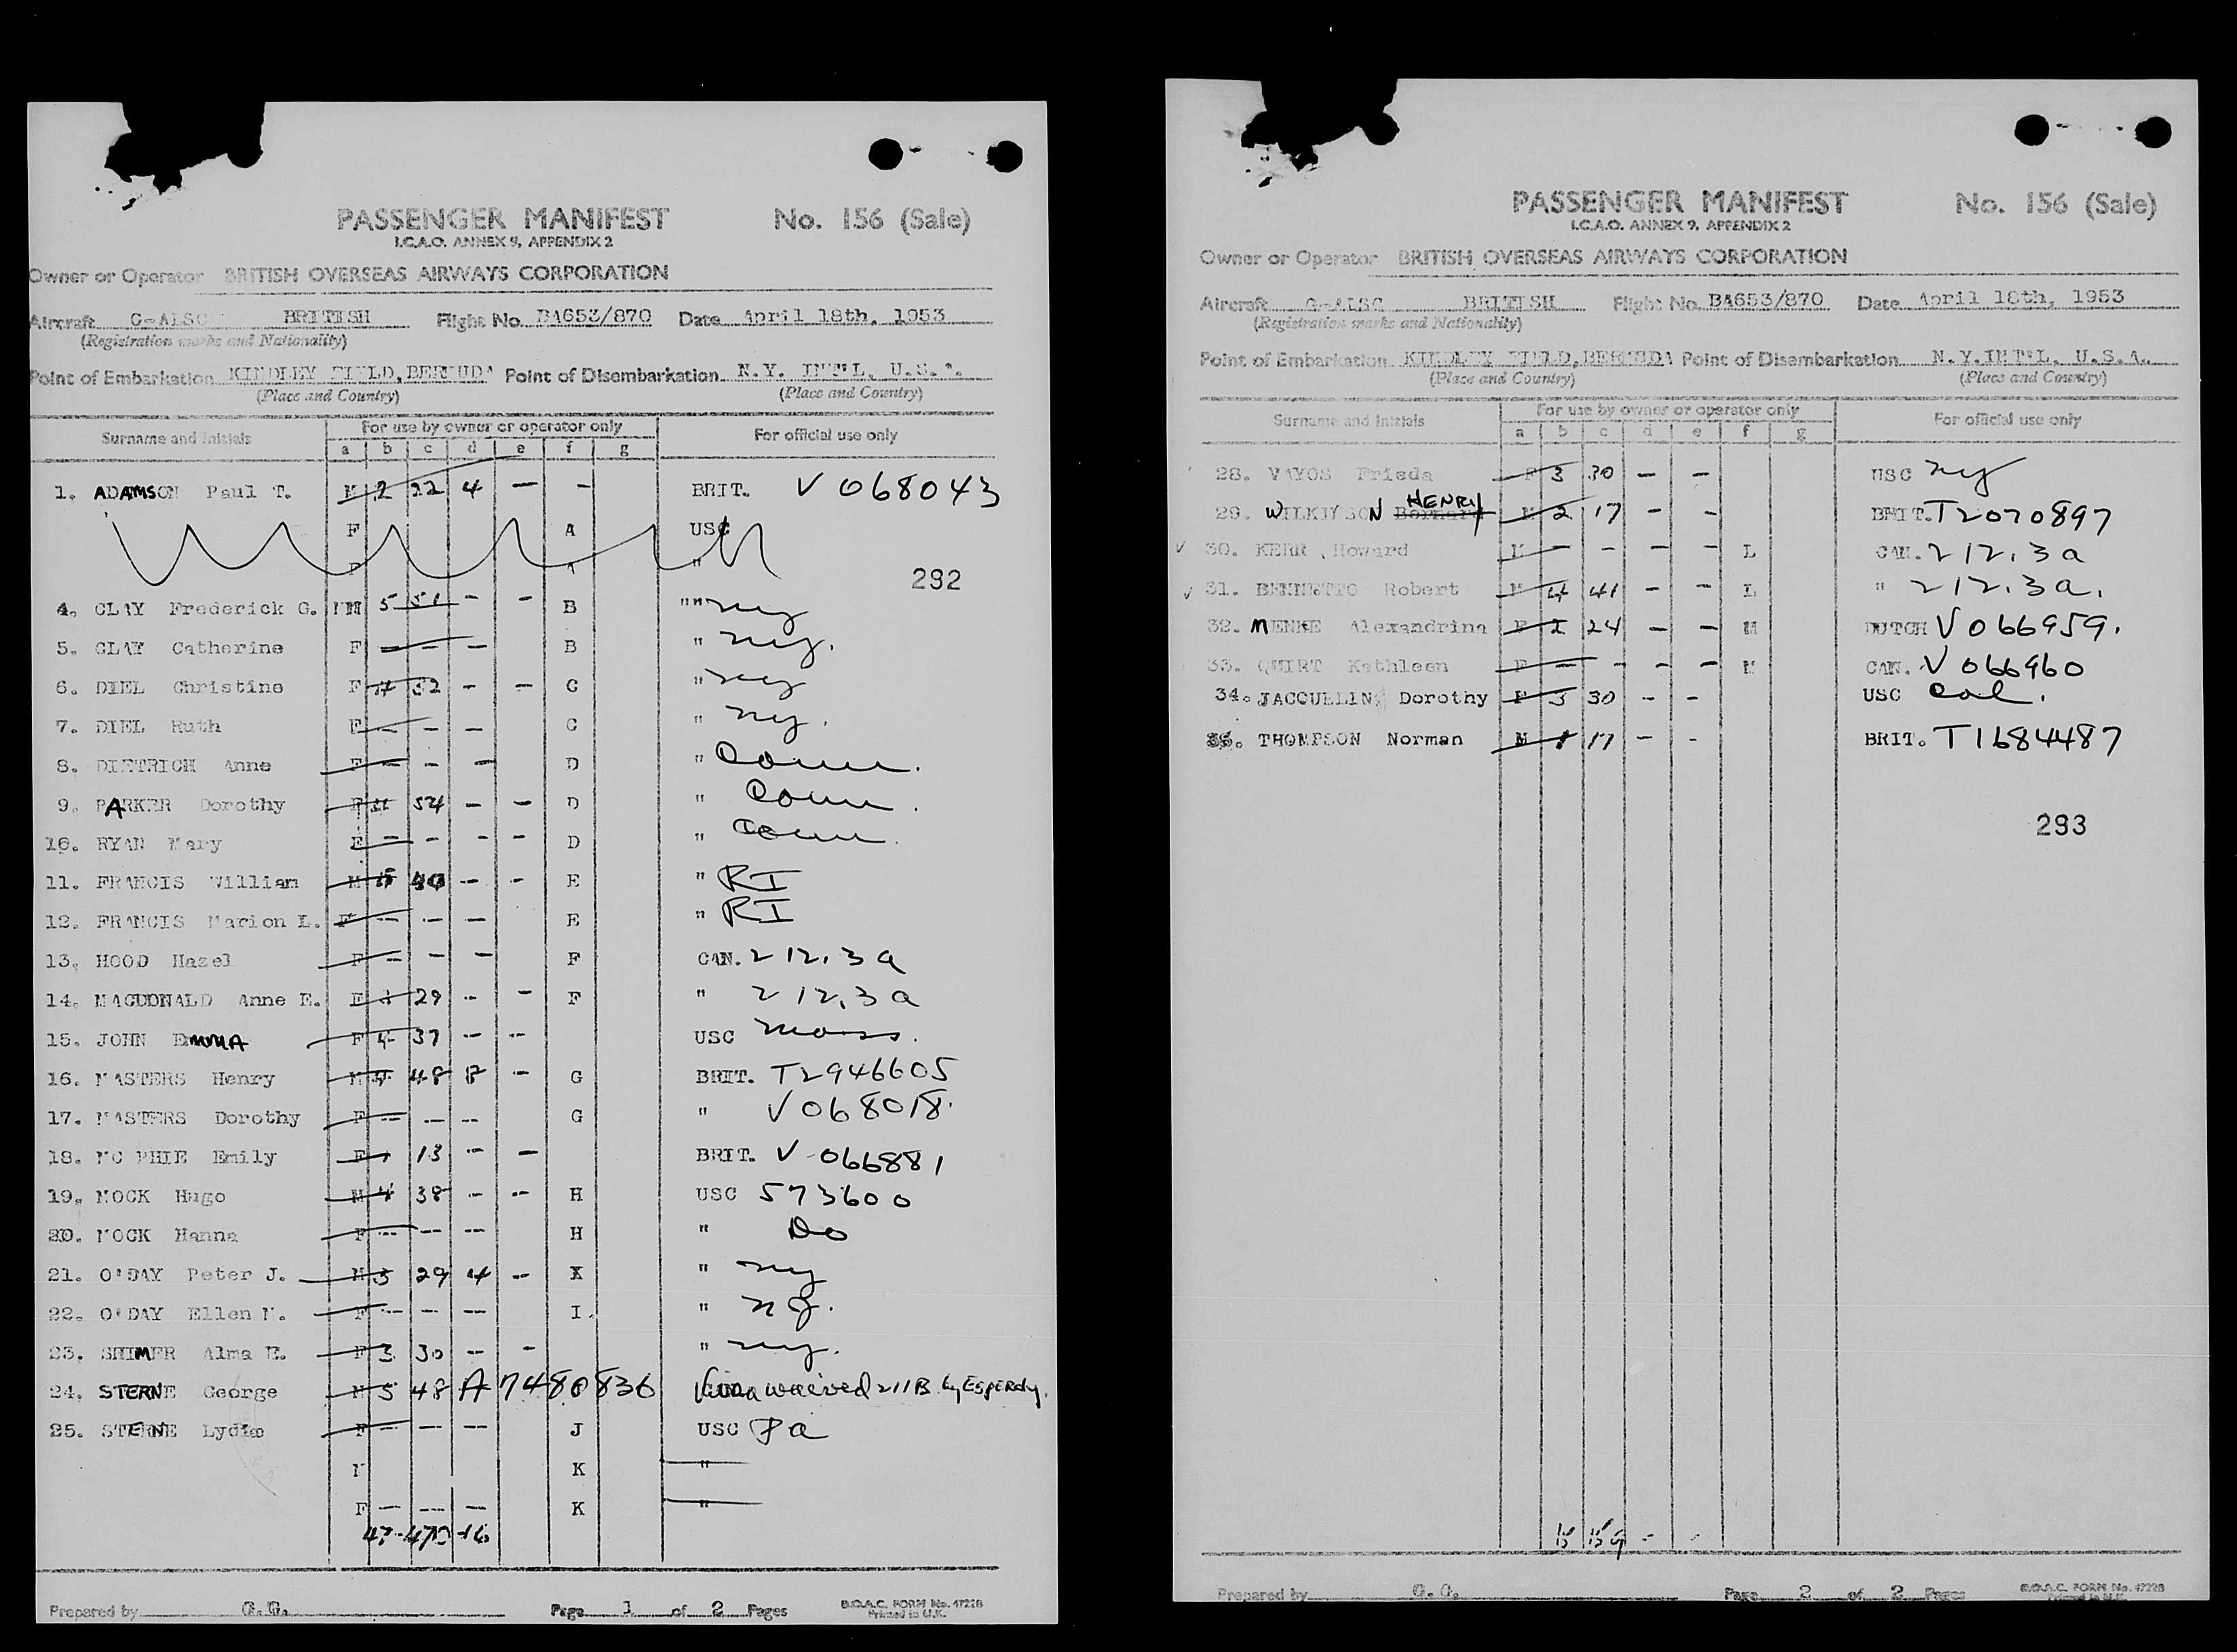 PASSENGER MANIFEST No. 156 (Sale)
I.C.A.O. ANNEX 9, APPENDIX 2
Owner or Operator BRITISH OVERSEAS AIRWAYS CORPORATION
Aircraft G-ALSC BRITISH Flight No. BA653/870 Date April 18th, 1953
(Registration marks and Nationality)
Point of Embarkation KINDLEY FIELD, BERMUDA Point of Disembarkation N.Y. INT'L, U.S.A.
(Place and Country) (Place and Country)
Surname and Initials For use by owner or operator only For official use only
a b c d e f g
1. ADAMSON Paul T. M 2 22 4 - - BRIT. V068043
F A USC
F A "
292
4. CLAY Frederick G. M 5 51 - - B "" ny
5. CLAY Catherine F - - - B " ny.
6. DIEL Christine F 4 52 - - C " ny
7. DIEL Ruth F - - - C " ny.
8. DIETRICH Anne F - - - D " Conn.
9. PARKER Dorothy F 54 - - D " Conn.
10. RYAN Mary F - - - - D " Conn.
11. FRANCIS William M 40 - - E " RI
12. FRANCIS Marion L. F - - - E " RI
13. HOOD Hazel F - - - F CAN. 212.3a
14. MACDONALD Anne E. F 3 29 - - F " 212.3a
15. JOHN EMMA F 4 37 - - USC mass.
16. MASTERS Henry M 4 48 8 - G BRIT. T2946605
17. MASTERS Dorothy F - - - G " V068018.
18. MC PHIE Emily F 1 13 - - BRIT. V-066881
19. MOCK Hugo M 4 38 - - H USC 573600
20. MOCK Hanna F - - - H " Do
21. O'DAY Peter J. M 3 29 4 - X " ny
22. O'DAY Ellen M. F - - - I. " nJ.
23. SHIMER Alma E. F 3 30 - - " ny.
24. STERNE George M 5 48 A 7480836 Visa waived 211B by Esperdy.
25. STERNE Lydia F - - - J USC Pa
M K "
F - - - K "
47 470 16
Prepared by G.G. Page 1 of 2 Pages B.O.A.C. FORM No. 4722B
Printed in U.K.
PASSENGER MANIFEST No. 156 (Sale)
I.C.A.O. ANNEX 9, APPENDIX 2
Owner or Operator BRITISH OVERSEAS AIRWAYS CORPORATION
Aircraft G-ALSC BRITISH Flight No. BA653/870 Date April 18th, 1953
(Registration marks and Nationality)
Point of Embarkation KINDLEY FIELD, BERMUDA Point of Disembarkation N.Y. INT'L, U.S.A.
(Place and Country) (Place and Country)
Surname and Initials For use by owner or operator only For official use only
a b c d e f g
28. VAYOS Frieda F 3 30 - - USC ny
29. WILKINSON Bernard HENRY M 2 17 - - BRIT. T2070897
30. KERR, Howard M - - - - L CAN. 212.3a
31. BENNETTO Robert M 4 41 - - L " 212.3a.
32. MENKE Alexandrina F 2 24 - - M DUTCH V066959.
33. QUIRT Kathleen F - - - - M CAN. V066960
34. JACQUELIN Dorothy F 3 30 - - USC Cal.
35. THOMPSON Norman M 1 17 - - BRIT. T1684487
293
15 159 - -
Prepared by G.G. Page 2 of 2 Pages B.O.A.C. FORM No. 4722B
Printed in U.K.